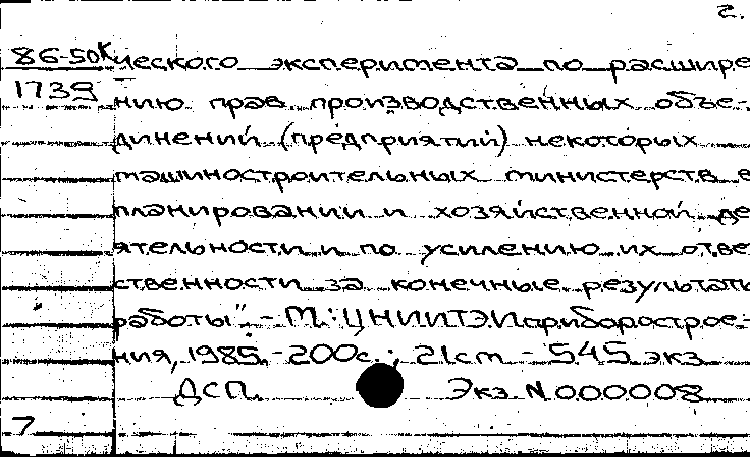 2.
86-50к ческого эксперимента по расшире
1739 нию прав производственных объе-
динений (предприятий) некоторых
машиностроительных министерств в
планировании и хозяйственной де
ятельности и по усилению их отве
ственности за конечные результаты
работы". - М.: ЦНИИТЭИприборострое-
ния, 1985. - 200с.; 21см - 545 экз
ДСП. Экз. N 000008
7